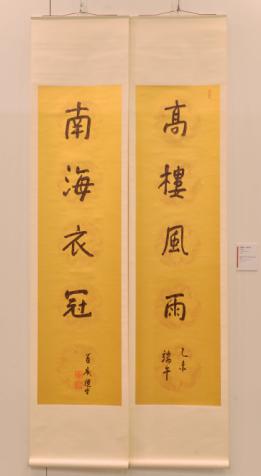 高樓風雨
乙未
端午
南海衣冠